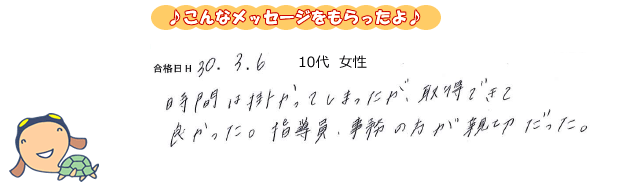 ♪こんなメッセージをもらったよ♪
合格日H 30.3.6 10代 女性
時間は掛かってしまったが、取得できて
良かった。指導員、事務の方が親切だった。